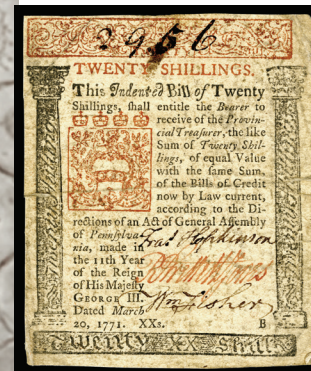 2956
TWENTY SHILLINGS.
This Indented Bill of Twenty
Shillings, shall entitle the Bearer to
receive of the Provin-
cial Treasurer, the like
Sum of Twenty Shil-
lings, of equal Value
with the same Sum,
of the Bills of Credit
now by Law current,
according to the Di-
rections of an Act of General Assembly
of Pennsylva-
nia, made in
the 11th Year
of the Reign
of His Majesty
GEORGE III.
Dated March
20, 1771. XXs. B
Fras Hopkinson
Wm Fisher
Twenty XX Shill